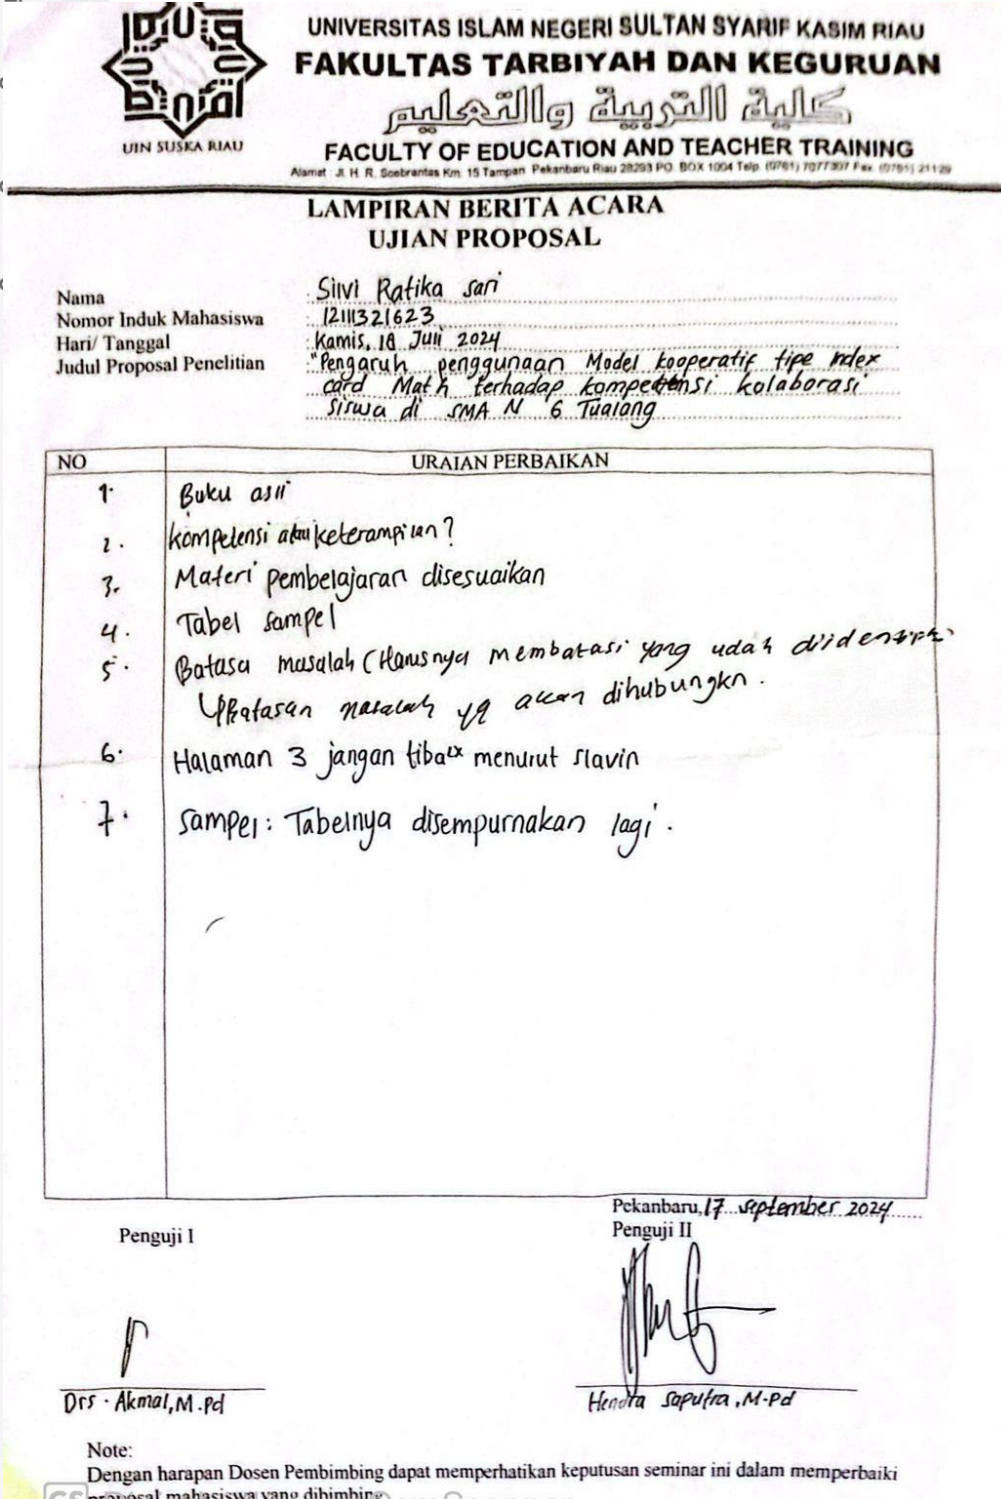 UIN SUSKA RIAU
UNIVERSITAS ISLAM NEGERI SULTAN SYARIF KASIM RIAU
FAKULTAS TARBIYAH DAN KEGURUAN
كلية التربية والتعليم
FACULTY OF EDUCATION AND TEACHER TRAINING
Alamat : Jl. H. R. Soebrantas Km. 15 Tampan Pekanbaru Riau 28293 PO. BOX 1004 Telp. (0761) 7077307 Fax. (0761) 21129
LAMPIRAN BERITA ACARA
UJIAN PROPOSAL
Nama : Silvi Ratika Sari
Nomor Induk Mahasiswa : 12111321623
Hari/ Tanggal : Kamis, 18 Juli 2024
Judul Proposal Penelitian : "Pengaruh penggunaan Model kooperatif tipe index
card Math terhadap kompetensi kolaborasi
siswa di SMA N 6 Tualang
NO URAIAN PERBAIKAN
1. Buku asli
2. kompetensi atau keterampilan?
3. Materi pembelajaran disesuaikan
4. Tabel sampel
5. Batasa masalah (Harusnya membatasi yang udah
Batasan masalah yg akan dihubungkn.
6. Halaman 3 jangan tiba2x menurut Slavin
7. Sampel: Tabelnya disempurnakan lagi.
Pekanbaru, 17 September 2024
Penguji I Penguji II
Drs. Akmal, M.Pd Hendra Saputra, M.Pd
Note:
Dengan harapan Dosen Pembimbing dapat memperhatikan keputusan seminar ini dalam memperbaiki
proposal mahasiswa yang dibimbing
CS